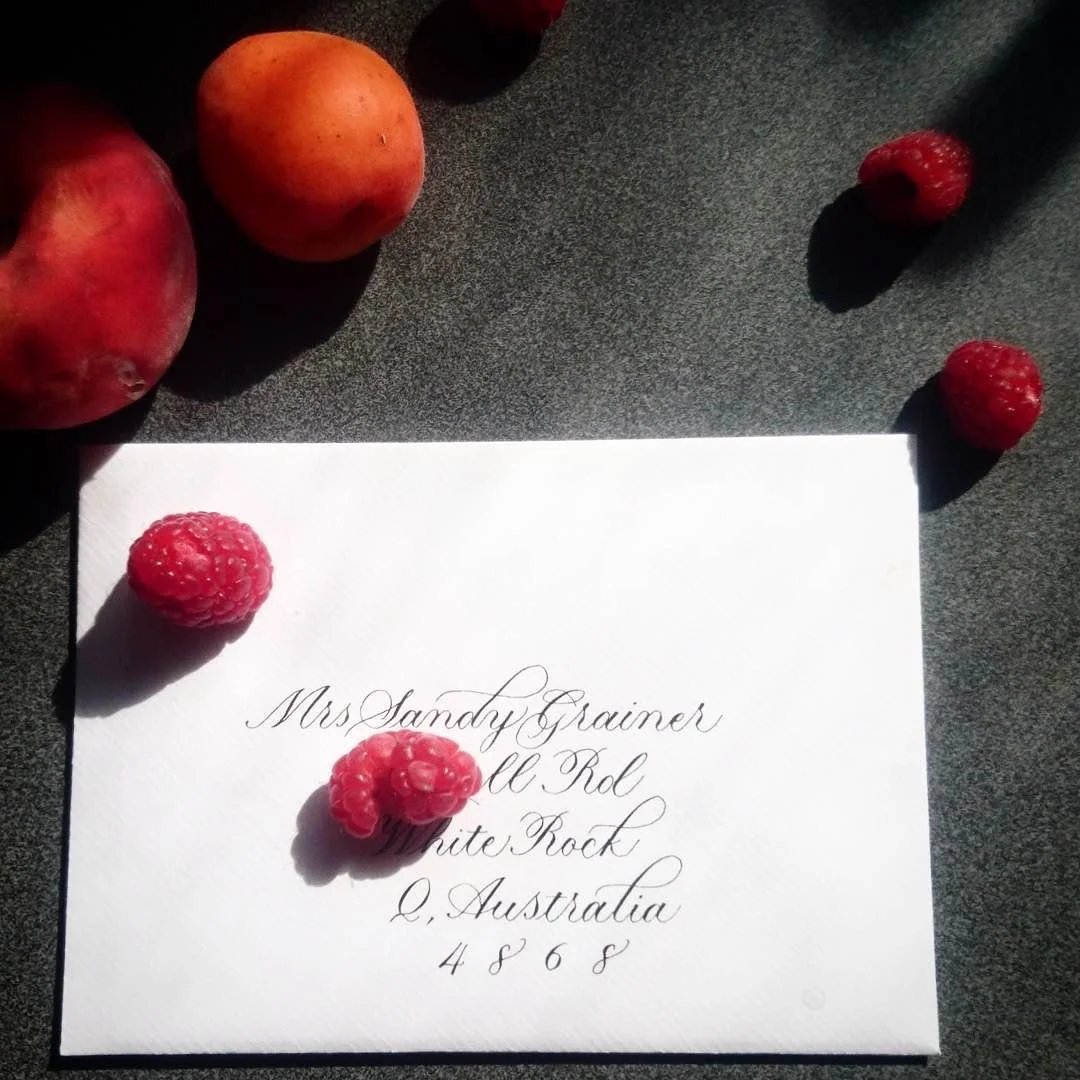 Mrs Sandy Grainer
Rd
White Rock
Q, Australia
4868